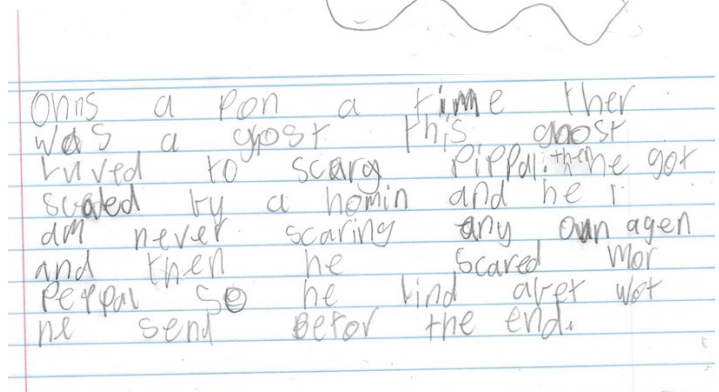 Ohns a pon a time ther
was a gost this gaost
Luved to scary Pippal. then he got
scated by a homin and he i
am never scaring any oun agen
and then he scared mor
Peppal so he lind afret wot
he send Befor the end.